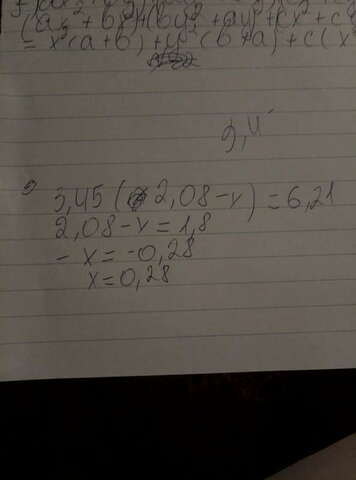 (ax² + bx²) + (by² + ay²) + cx² + c
= x²(a+b) + y²(b+a) + c(x
9,4
3,45 ( 2,08-x) = 6,21
2,08-x = 1,8
- x = -0,28
x = 0,28